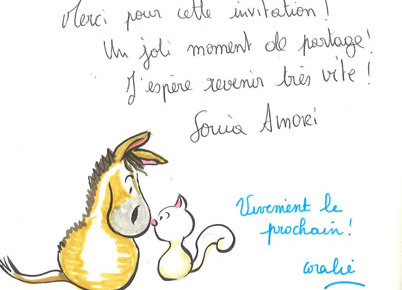 Merci pour cette invitation !
Un joli moment de partage !
J'espère revenir très vite !
Sonia Amori
Vivement le
prochain !
Coralie